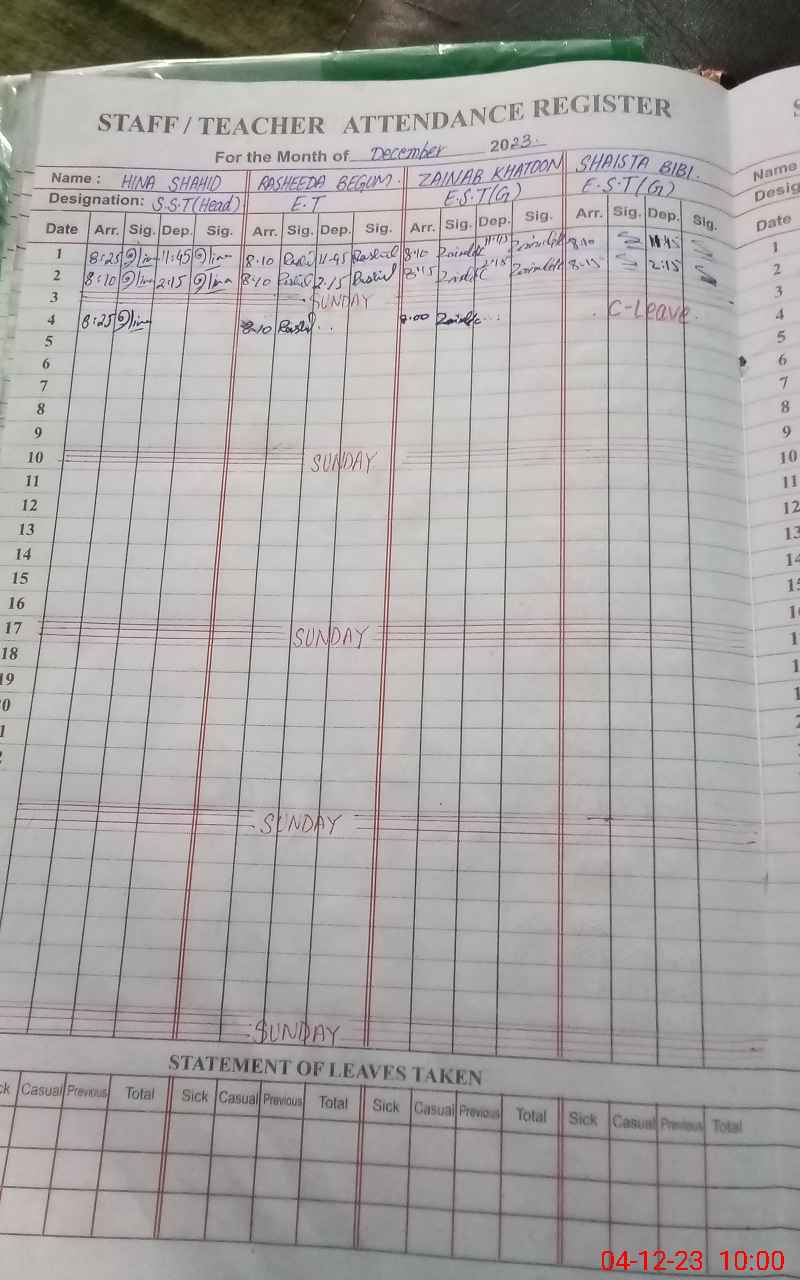 STAFF / TEACHER ATTENDANCE REGISTER
For the Month of December 2023.
Name : HINA SHAHID RASHEEDA BEGUM. ZAINAB KHATOON SHAISTA BIBI. Name
Designation: S.S.T(Head) E.T E.S.T(G) E.S.T(G)
Date Arr. Sig. Dep. Sig. Arr. Sig. Dep. Sig. Arr. Sig. Dep. Sig. Arr. Sig. Dep. Sig. Date
1 8:25 11:45 8:10 11:45 8:10 11:45 8:10 11:45 1
2 8:10 2:15 8:10 2:15 8:15 2:15 8:15 2:15 2
3 SUNDAY 3
4 8:25 8:10 8:00 C-Leave. 4
5 5
6 6
7 7
8 8
9 9
10 SUNDAY 10
11 11
12 12
13
14
15
16
17 SUNDAY
18
19
SUNDAY
SUNDAY
STATEMENT OF LEAVES TAKEN
Casual Previous Total Sick Casual Previous Total Sick Casual Previous Total Sick Casual Previous Total
04-12-23 10:00